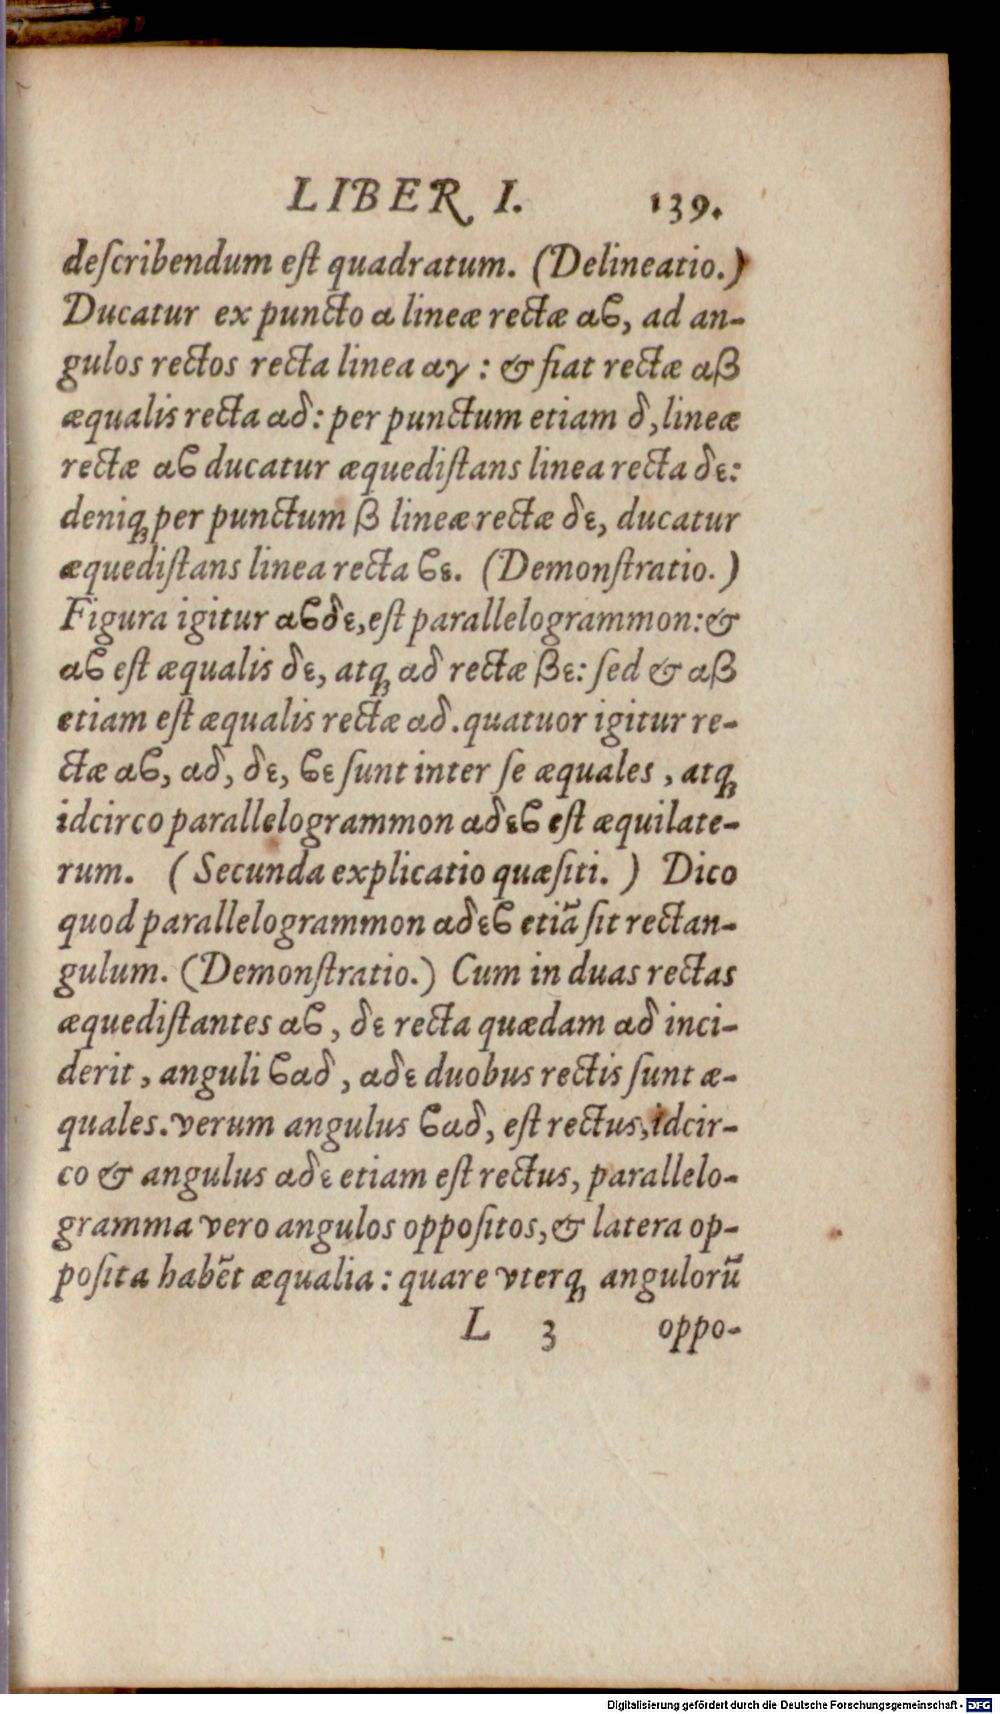 LIBER I. 139.
deſcribendum eſt quadratum. (Delineatio.)
Ducatur ex puncto α lineæ rectæ αϐ, ad an-
gulos rectos recta linea αγ : & fiat rectæ αβ
æqualis recta αδ: per punctum etiam δ, lineæ
rectæ αϐ ducatur æquediſtans linea recta δε:
deniq; per punctum β lineæ rectæ δε, ducatur
æquediſtans linea recta ϐε. (Demonſtratio.)
Figura igitur αϐδε, eſt parallelogrammon: &
αϐ eſt æqualis δε, atq; αδ rectæ βε: ſed & αβ
etiam eſt æqualis rectæ αδ. quatuor igitur re-
ctæ αϐ, αδ, δε, ϐε ſunt inter ſe æquales, atq;
idcirco parallelogrammon αδεϐ eſt æquilate-
rum. (Secunda explicatio quæſiti.) Dico
quod parallelogrammon αδεϐ etiã ſit rectan-
gulum. (Demonſtratio.) Cum in duas rectas
æquediſtantes αϐ, δε recta quædam αδ inci-
derit, anguli ϐαδ, αδε duobus rectis ſunt æ-
quales. verum angulus ϐαδ, eſt rectus, idcir-
co & angulus αδε etiam eſt rectus, parallelo-
gramma vero angulos oppoſitos, & latera op-
poſita habẽt æqualia: quare vterq; angulorũ
L 3 oppo-
Digitalisierung gefördert durch die Deutsche Forschungsgemeinschaft - DFG